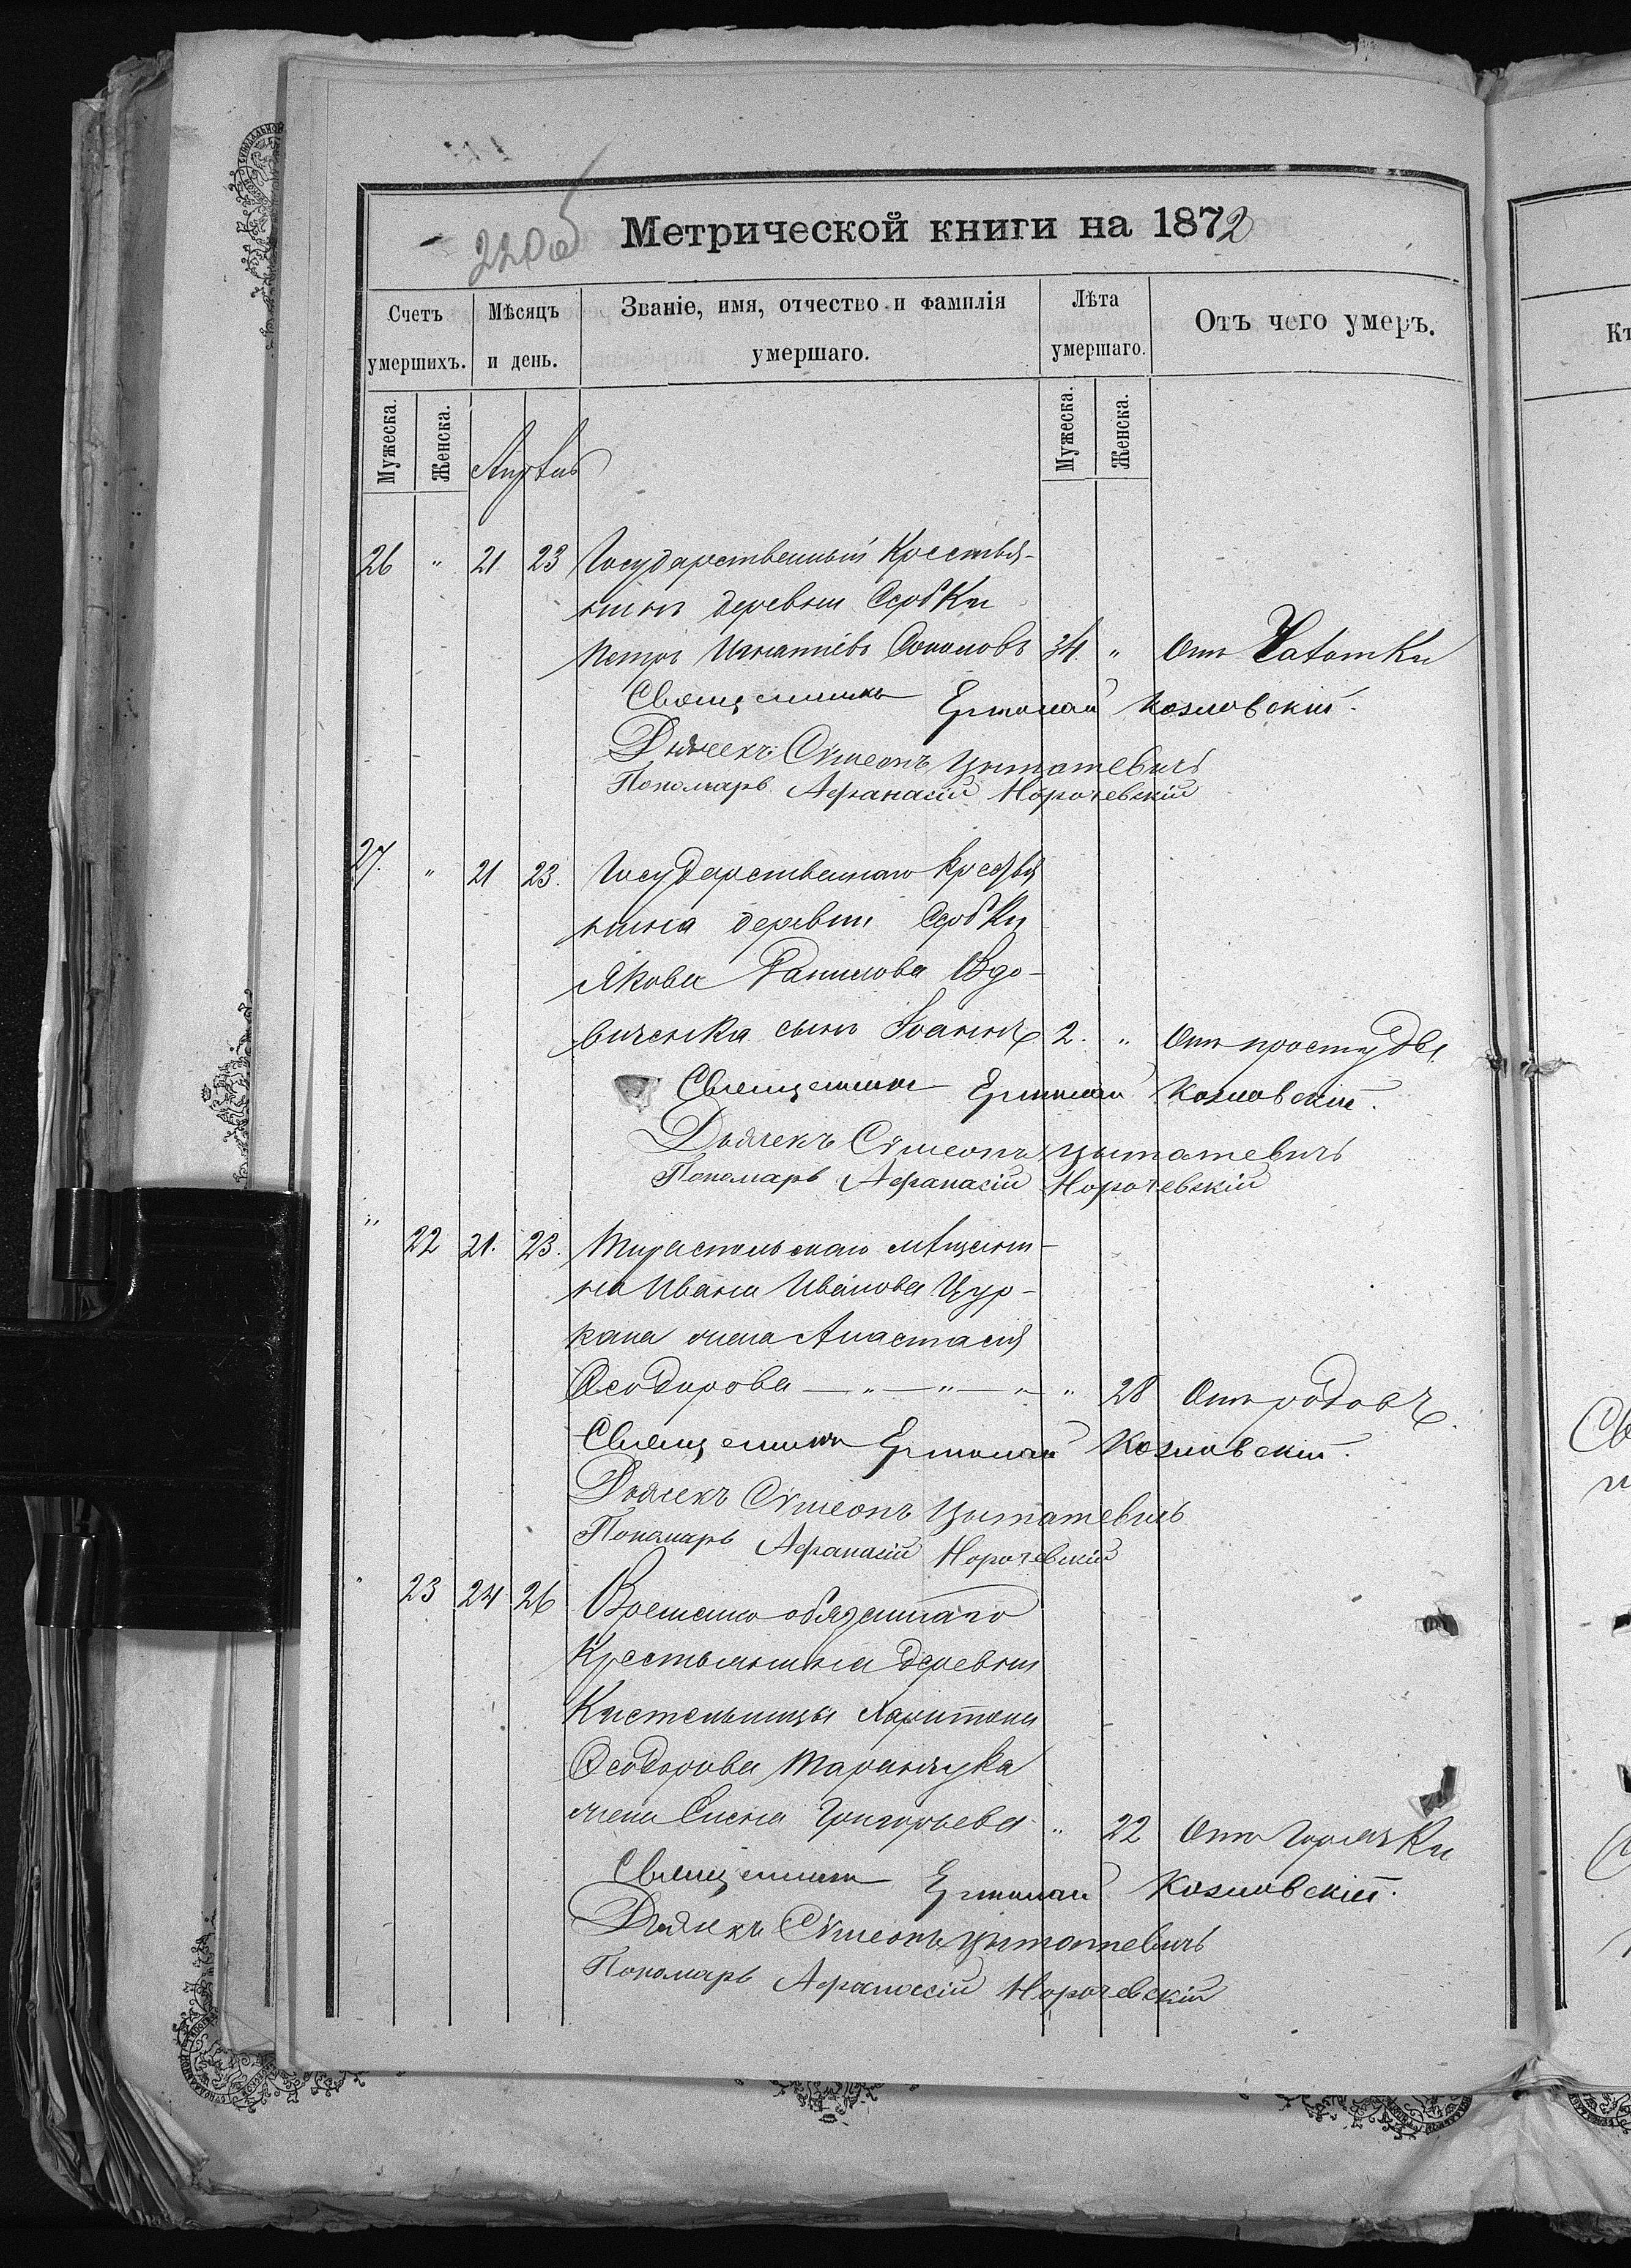 220об
Метрической книги на 1872
Счетъ умершихъ.
Мѣсяцъ и день.
Званіе, имя, отчество и фамилія умершаго.
Лѣта умершаго.
Отъ чего умеръ.
Мужеска.
Женска.
Апрѣль
Мужеска.
Женска.
26 " 21 23 Государственный Крестья-
нинъ деревни Сербки
Петръ Игнатіевъ Соколовъ 34. " Отъ Чахотки
Священникъ Ермолай Козловскій.
Дьячекъ Сѵмеонъ Цытатевичъ
Пономарь Афанасій Норочевскій
27. " 21 23. Государственнаго Крестья
нина деревни Сербки
Якова Данилова Вдо-
виченка сынъ Іоаннъ 2. " Отъ простуды
Священникъ Ермолай Козловскій.
Дьячекъ Сѵмеонъ Цытатевичъ
Пономарь Афанасій Норочевскій
" 22 21. 23. Тираспольскаго мѣщани-
на Ивана Иванова Цур-
кана жена Анастасія
Ѳеодорова — " — " — " " 28 Отъ родовъ.
Священникъ Ермолай Козловскій.
Дьячекъ Сѵмеонъ Цытатевичъ
Пономарь Афанасій Норочевскій
" 23 24 26 Временно обязаннаго
Крестьянина деревни
Кистельницы Харитона
Ѳеодорова Таранчука
жена Елена Григорьева " 22 Отъ Горячки
Священникъ Ермолай Козловскій.
Дьячекъ Сѵмеонъ Цытатевичъ
Пономарь Афанассій Норочевскій